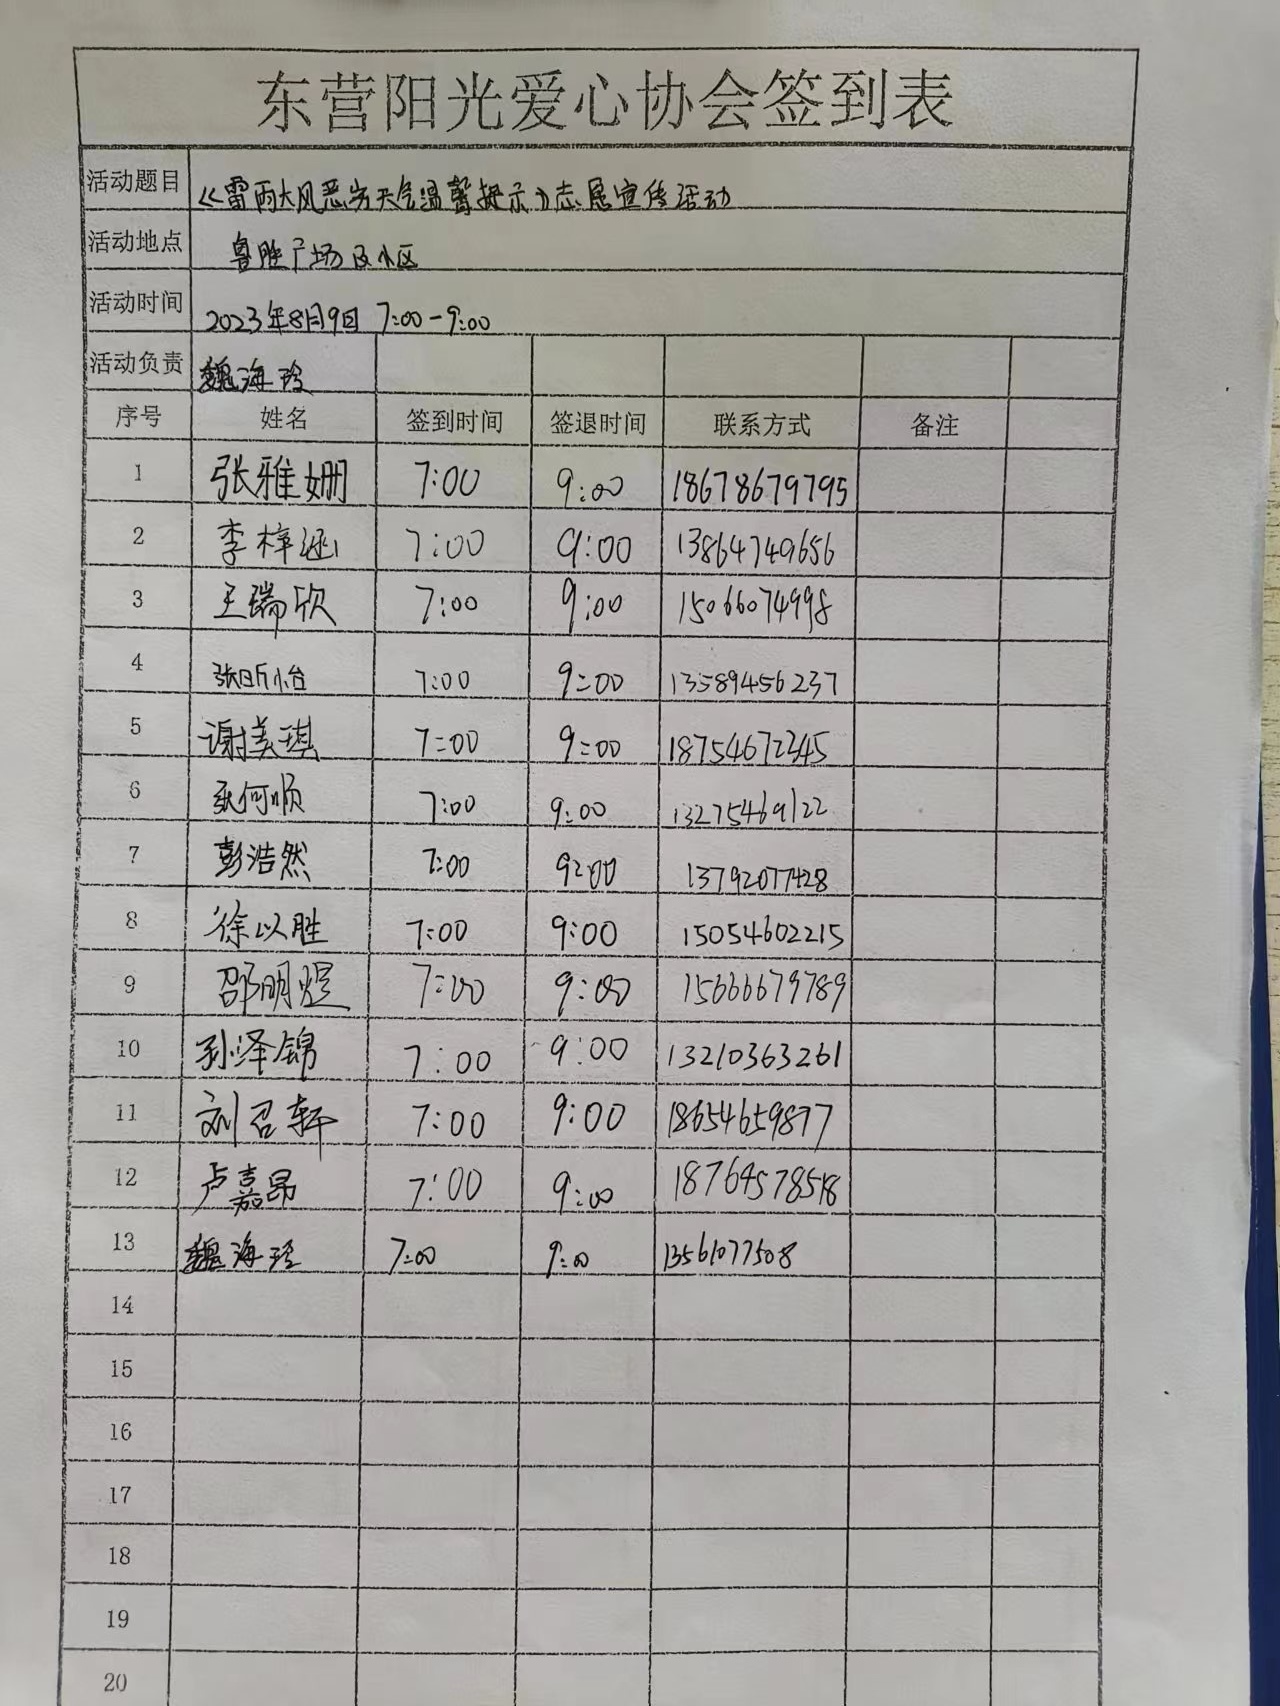 东营阳光爱心协会签到表
活动题目 《雷雨大风恶劣天气温馨提示》志愿宣传活动
活动地点 鲁胜广场及小区
活动时间 2023年8月9日 7:00-9:00
活动负责 魏海玲
序号 姓名 签到时间 签退时间 联系方式 备注
1 张雅姗 7:00 9:00 18678679795
2 李梓涵 7:00 9:00 13864749656
3 王瑞欣 7:00 9:00 15066074998
4 张昕怡 7:00 9:00 13589456237
5 谢美琪 7:00 9:00 18754672345
6 耿何顺 7:00 9:00 13275469122
7 彭浩然 7:00 9:00 13792077428
8 徐以胜 7:00 9:00 15054602215
9 邵明煜 7:00 9:00 15666679789
10 孙泽锦 7:00 9:00 13210363261
11 刘召轩 7:00 9:00 18654659877
12 卢嘉昂 7:00 9:00
13 魏海玲 7:00 9:00 13561077508
14
15
16
17
18
19
20